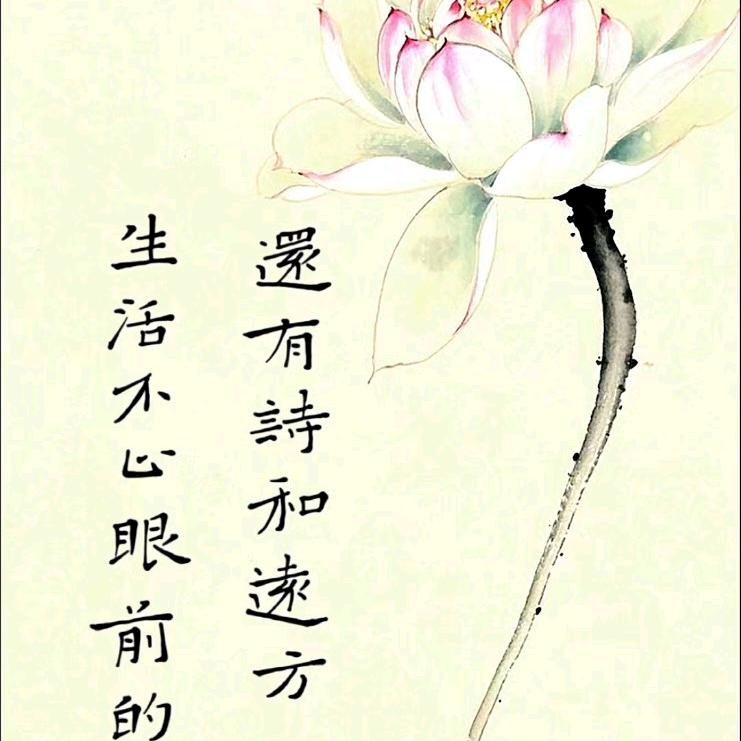 生活不止眼前的
還有詩和遠方